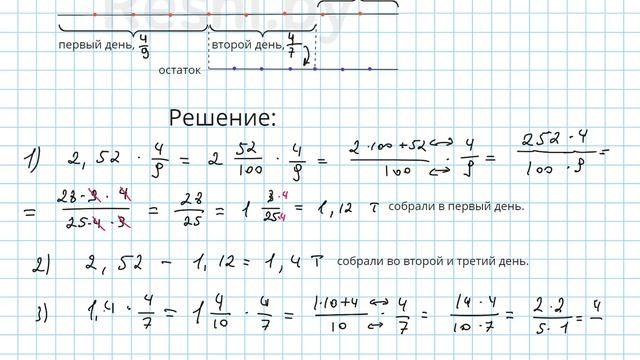 Reshi.by
первый день, 4/9 второй день, 4/7
остаток
Решение:
1) 2,52 · 4/9 = 2 52/100 · 4/9 = 2·100+52/100 · 4/9 = 252·4/100·9 =
= 28·9·4/25·4·9 = 28/25 = 1 3·4/25·4 = 1,12 т собрали в первый день.
2) 2,52 - 1,12 = 1,4 т собрали во второй и третий день.
3) 1,4 · 4/7 = 1 4/10 · 4/7 = 1·10+4/10 · 4/7 = 14·4/10·7 = 2·2/5·1 = 4